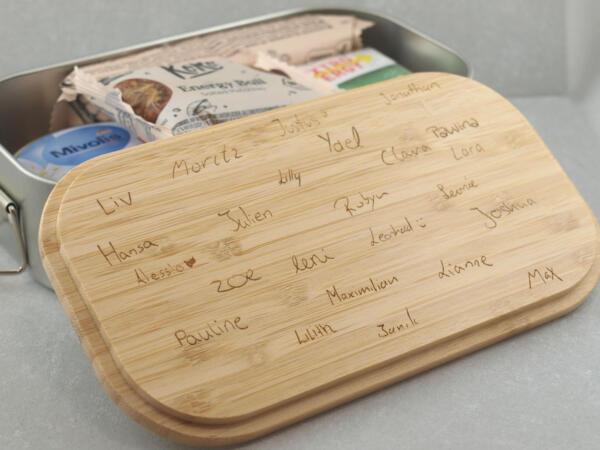 KoRo
Energy Ball
Mivolis
Jonathan
Justus
Moritz
Yael
Pawina
Clava
Lara
Lilly
Liv
Julien
Robyn
Leonie
Joshua
Hansa
Alessio
zoe
leni
Leonhard :)
Maximilian
Lianne
Max
Pauline
Lilith
Janik